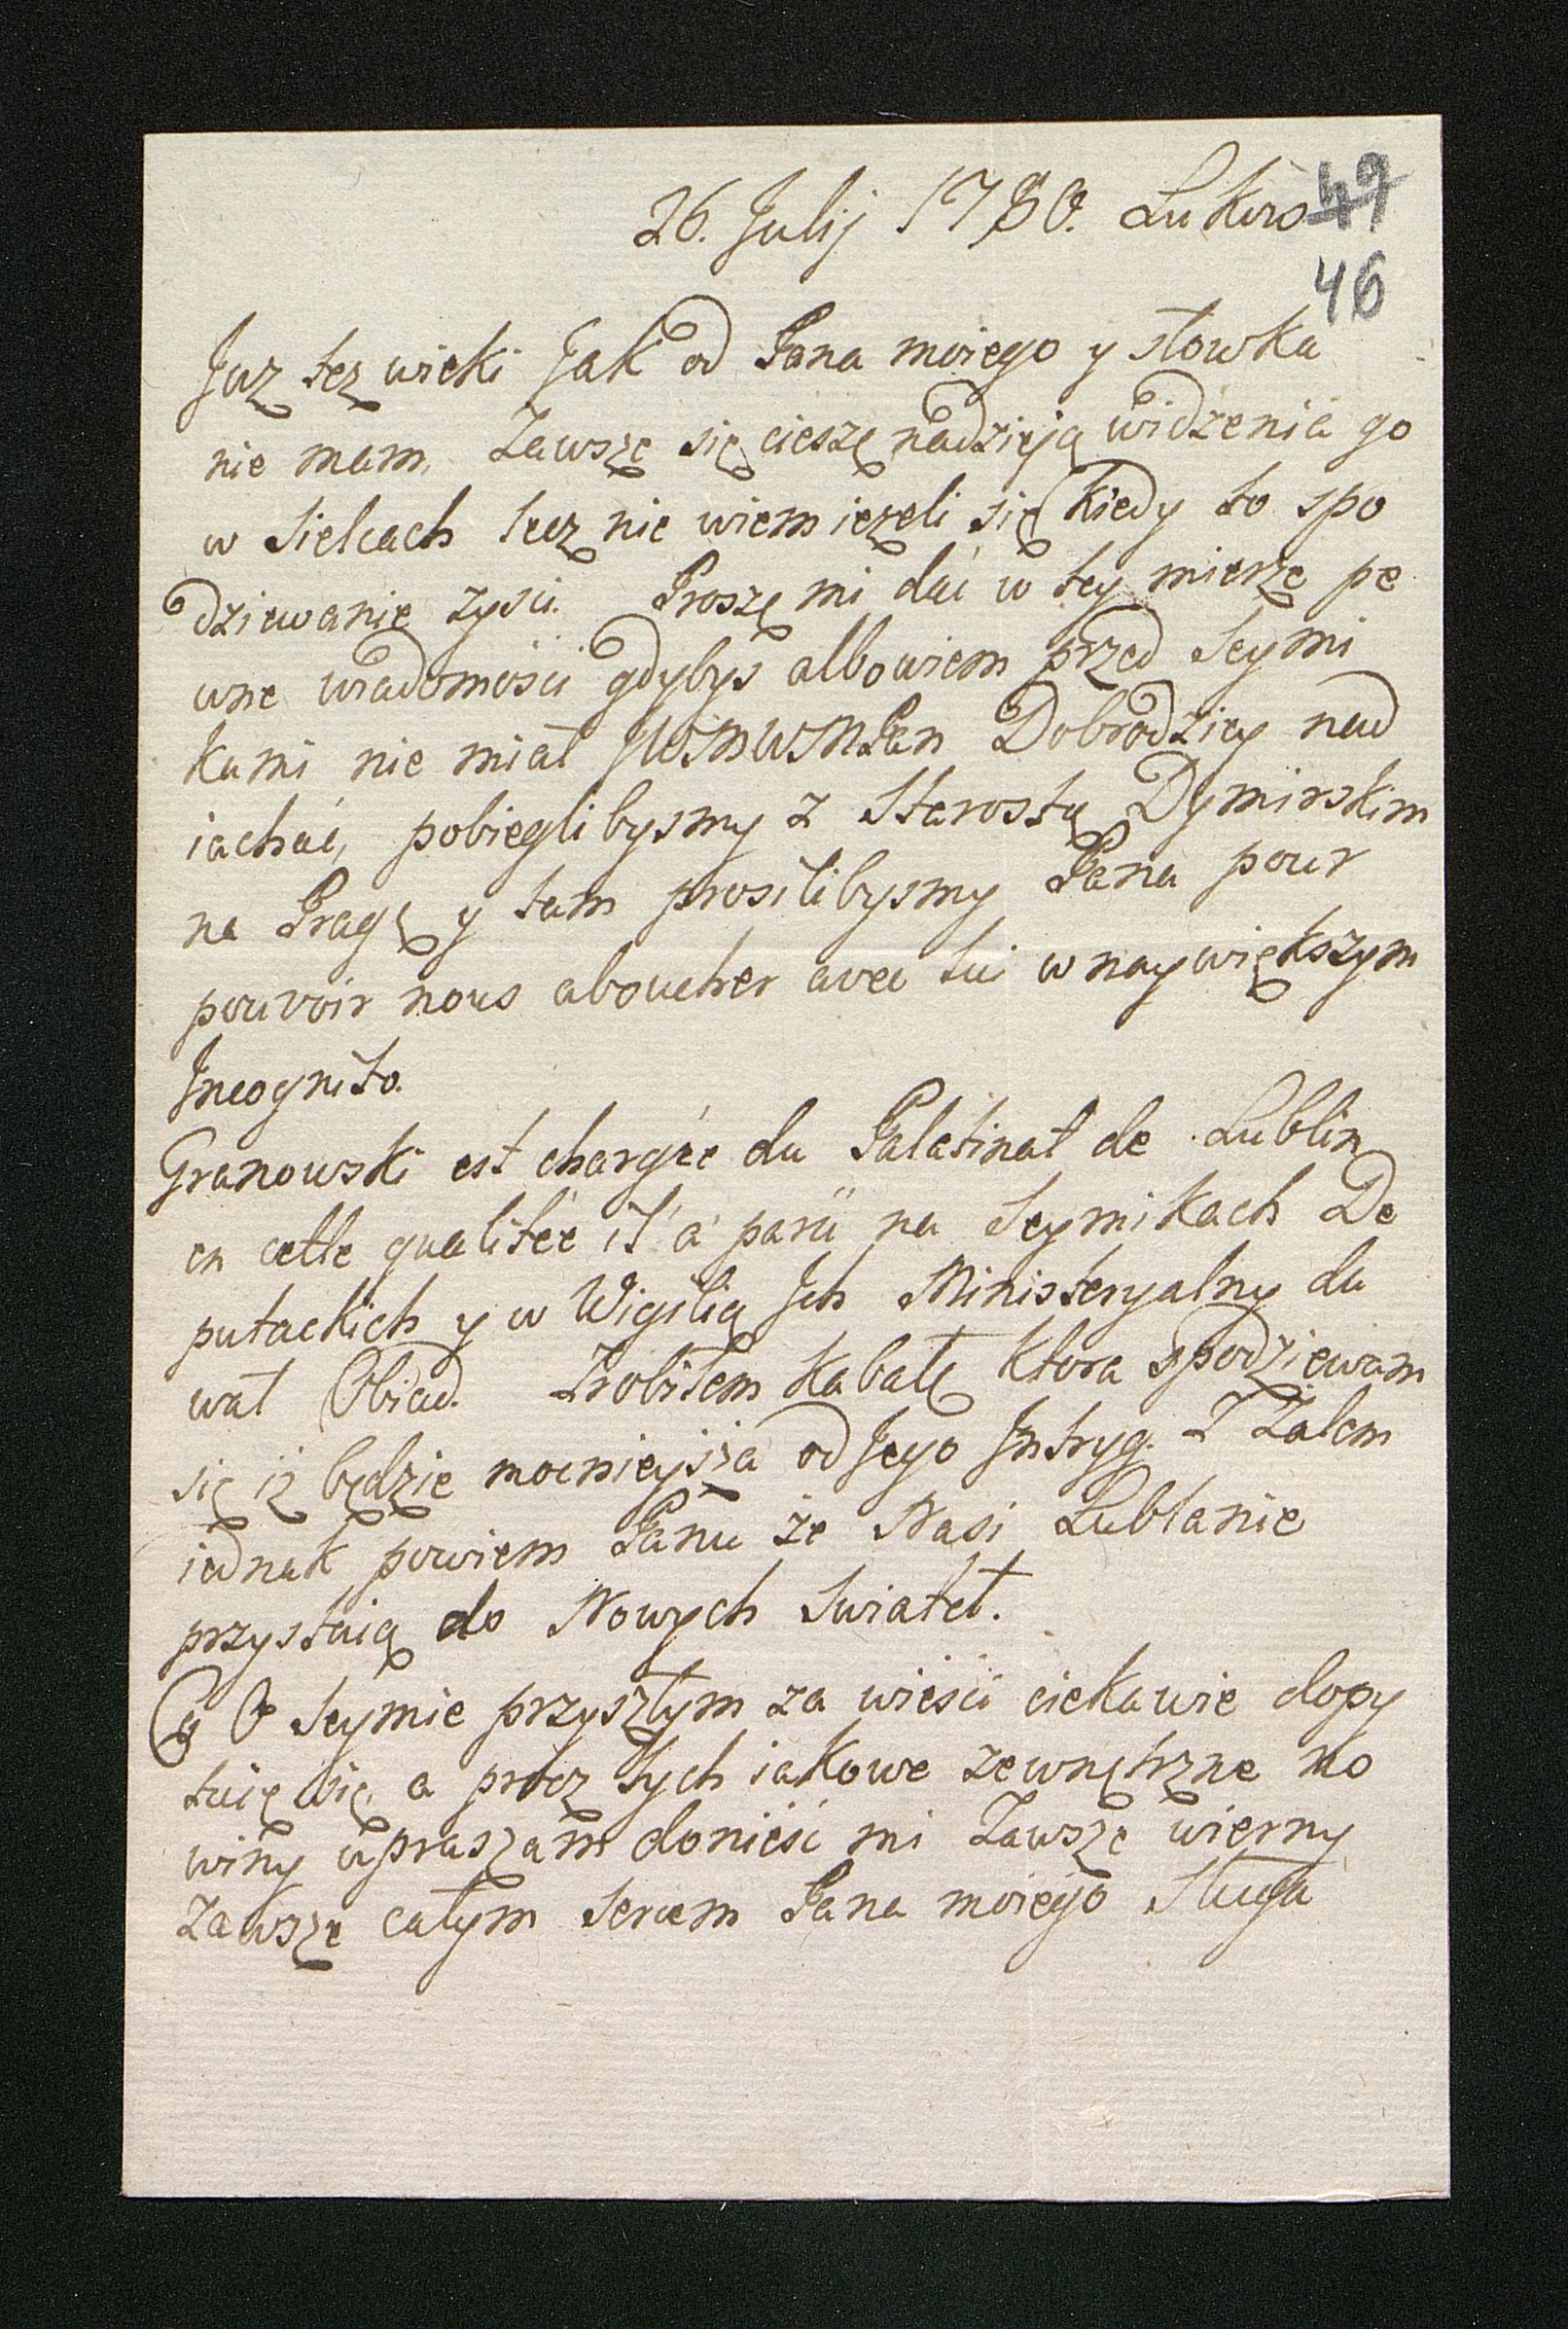 26. Julij 1780. Lukow
49
46
Juz tez wieki Jak od Pana moiego y słowka
nie mam, Zawsze się cieszę nadzieją widzenia go
w Sielcach lecz nie wiem iezeli się kiedy to spo
dziewanie zysci. Proszę mi dać w tey mierze pe
wne wiadomości gdybys albowiem przed Seymi
kami nie miał JWWMPan Dobrodziey nad
iachać, pobieglibysmy z Starostą Dymirskim
na Pragę y tam prosilibysmy Pana pour
pouvoir nous aboucher avec lui w naywiększym
Incognito.
Granowski est chargée du Palatinat de Lublin
en cette qualitée il a parü na Seymikach De
putackich y w Wigilią Ich Ministeryalny da
wał Obiad. Zrobiłem kabałę ktora spodziewam
się iz będzie mocnieysza od Jego Intryg. Z Żalem
iednak powiem Panu że Nasi Lublanie
przystaią do Nowych Swiateł.
O Seymie przyszłym za wieści ciekawie dopy
tuię się, a procz tych iakowe zewnętrzne no
winy upraszam donieść mi Zawsze wierny
zawsze całym sercem Pana moiego Sługa